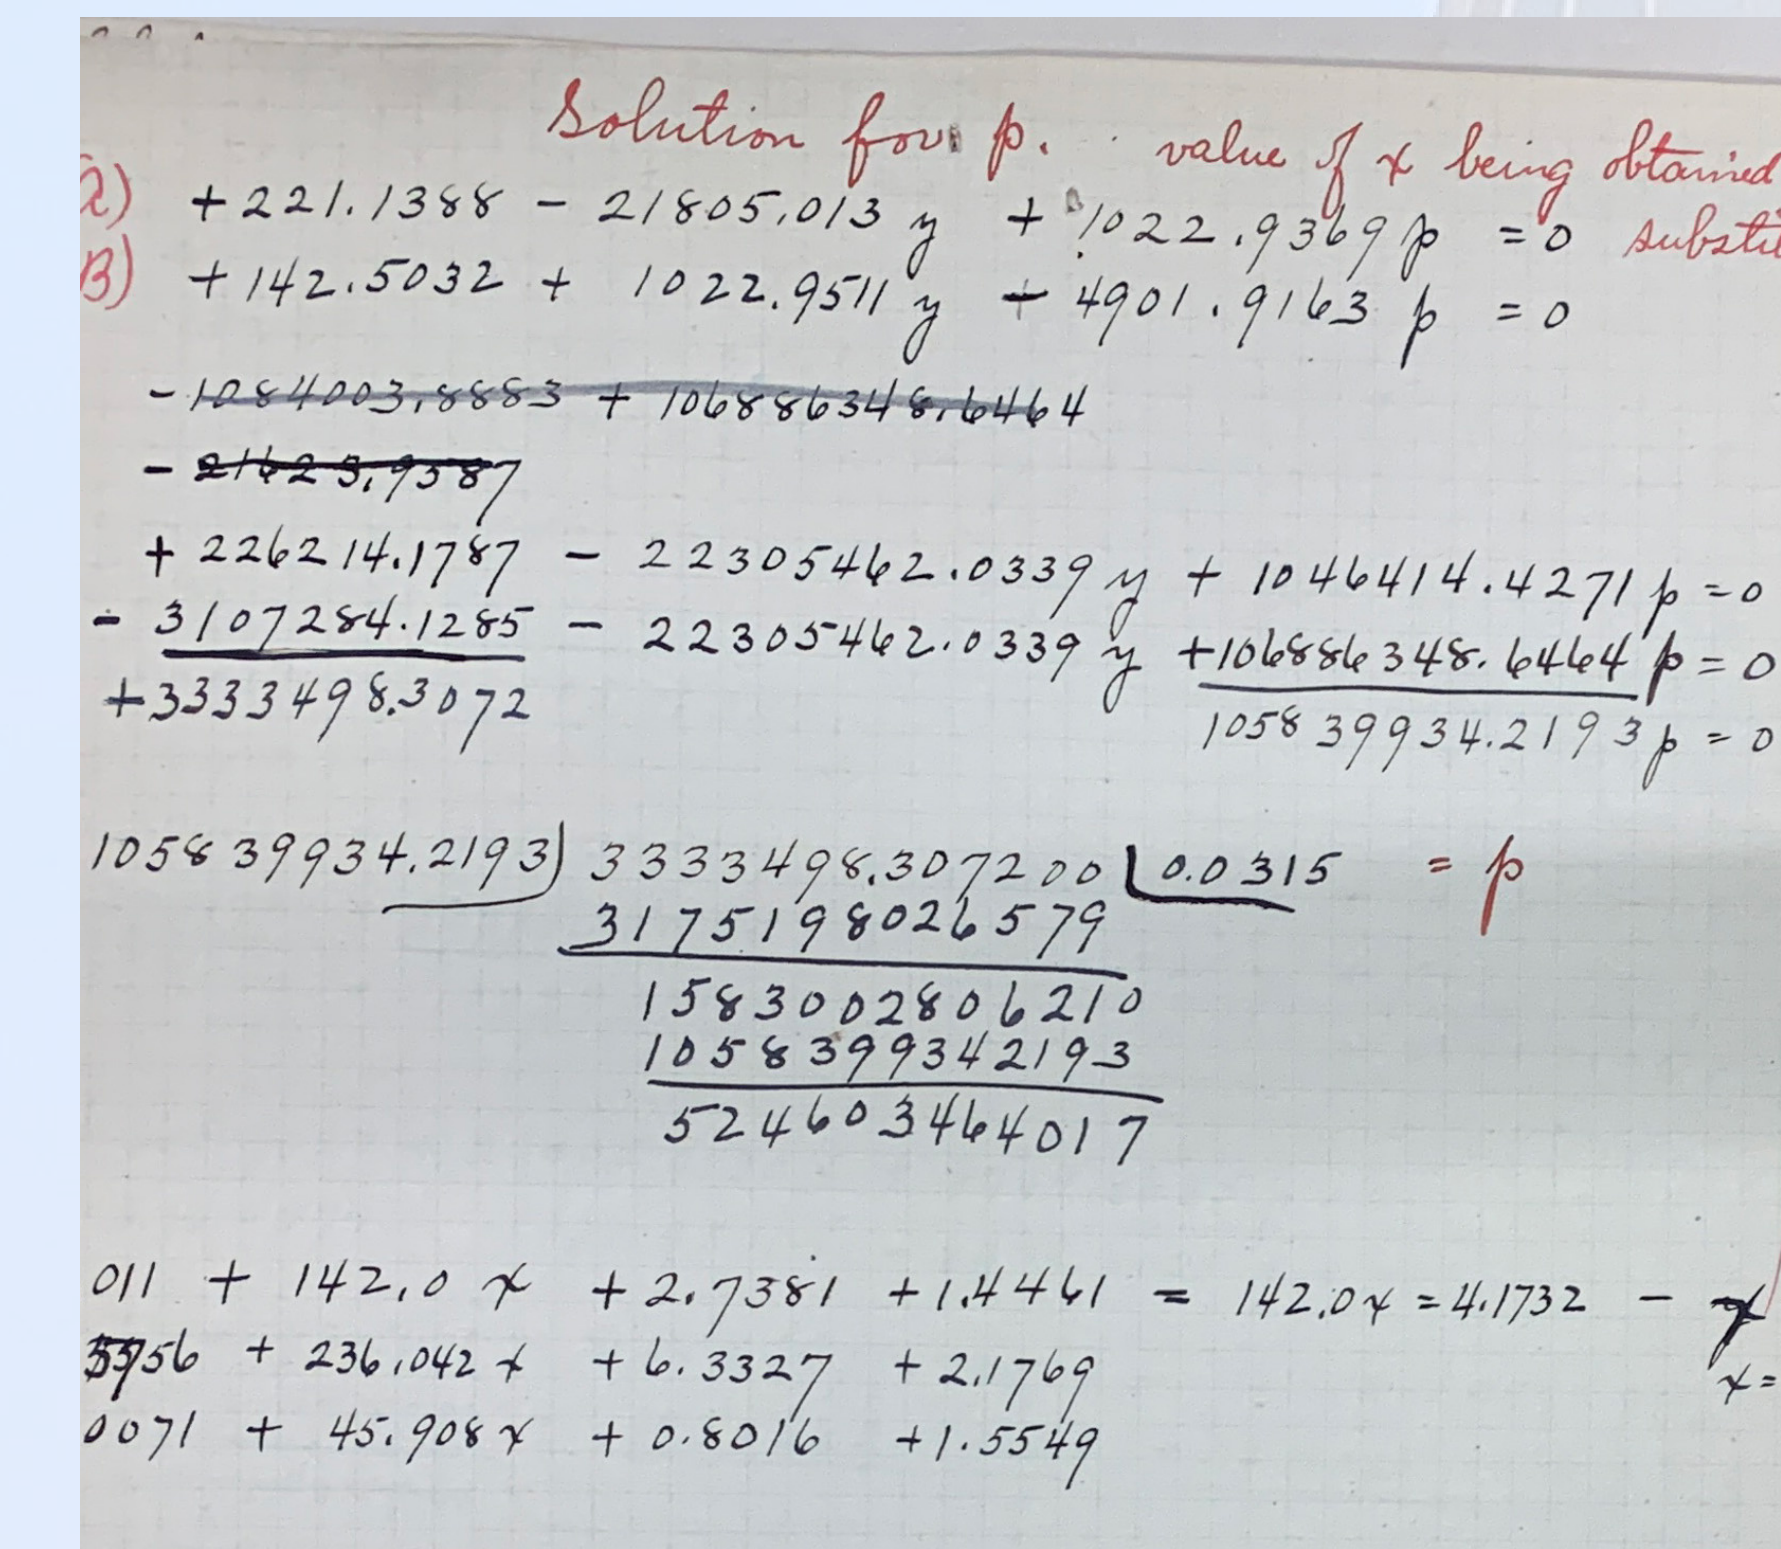 Solution for p. value of x being obtained
A) +221.1388 - 21805.013 y + 1022.9369 p = 0 substi
B) +142.5032 + 1022.9511 y - 4901.9163 p = 0
-1084003.8883 + 106886348.6464
-21623.9587
+226214.1787 - 22305462.0339 y + 1046414.4271 p = 0
-3107284.1285 - 22305462.0339 y +106886348.6464 p = 0
+3333498.3072 105839934.2193 p = 0
105839934.2193) 3333498.307200 0.0315 = p
3175198026579
1583002806210
1058399342193
524603464017
011 + 142.0 x + 2.7381 + 1.4461 = 142.0x = 4.1732 -
5756 + 236.042 x + 6.3327 + 2.1769 x =
0071 + 45.908 x + 0.8016 + 1.5549